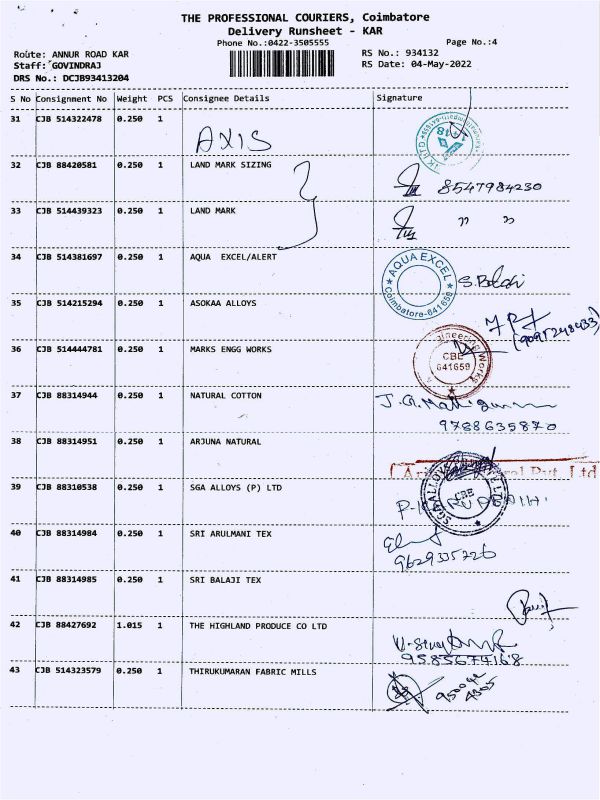 THE PROFESSIONAL COURIERS, Coimbatore
Delivery Runsheet - KAR
Phone No.:0422-3505555
Page No.:4
Route: ANNUR ROAD KAR
RS No.: 934132
Staff: GOVINDRAJ
RS Date: 04-May-2022
DRS No.: DCJB93413204
S No Consignment No Weight PCS Consignee Details Signature
31 CJB 514322478 0.250 1
AXIS
32 CJB 88420581 0.250 1 LAND MARK SIZING
8547984230
33 CJB 514439323 0.250 1 LAND MARK
" "
34 CJB 514381697 0.250 1 AQUA EXCEL/ALERT
AQUA EXCEL
Coimbatore-641659
35 CJB 514215294 0.250 1 ASOKAA ALLOYS
36 CJB 514444781 0.250 1 MARKS ENGG WORKS
CBE
641659
37 CJB 88314944 0.250 1 NATURAL COTTON
9788635870
38 CJB 88314951 0.250 1 ARJUNA NATURAL
Pvt. Ltd
39 CJB 88310538 0.250 1 SGA ALLOYS (P) LTD
SGA ALLOYS
CBE
40 CJB 88314984 0.250 1 SRI ARULMANI TEX
9629335726
41 CJB 88314985 0.250 1 SRI BALAJI TEX
42 CJB 88427692 1.015 1 THE HIGHLAND PRODUCE CO LTD
9585674168
43 CJB 514323579 0.250 1 THIRUKUMARAN FABRIC MILLS